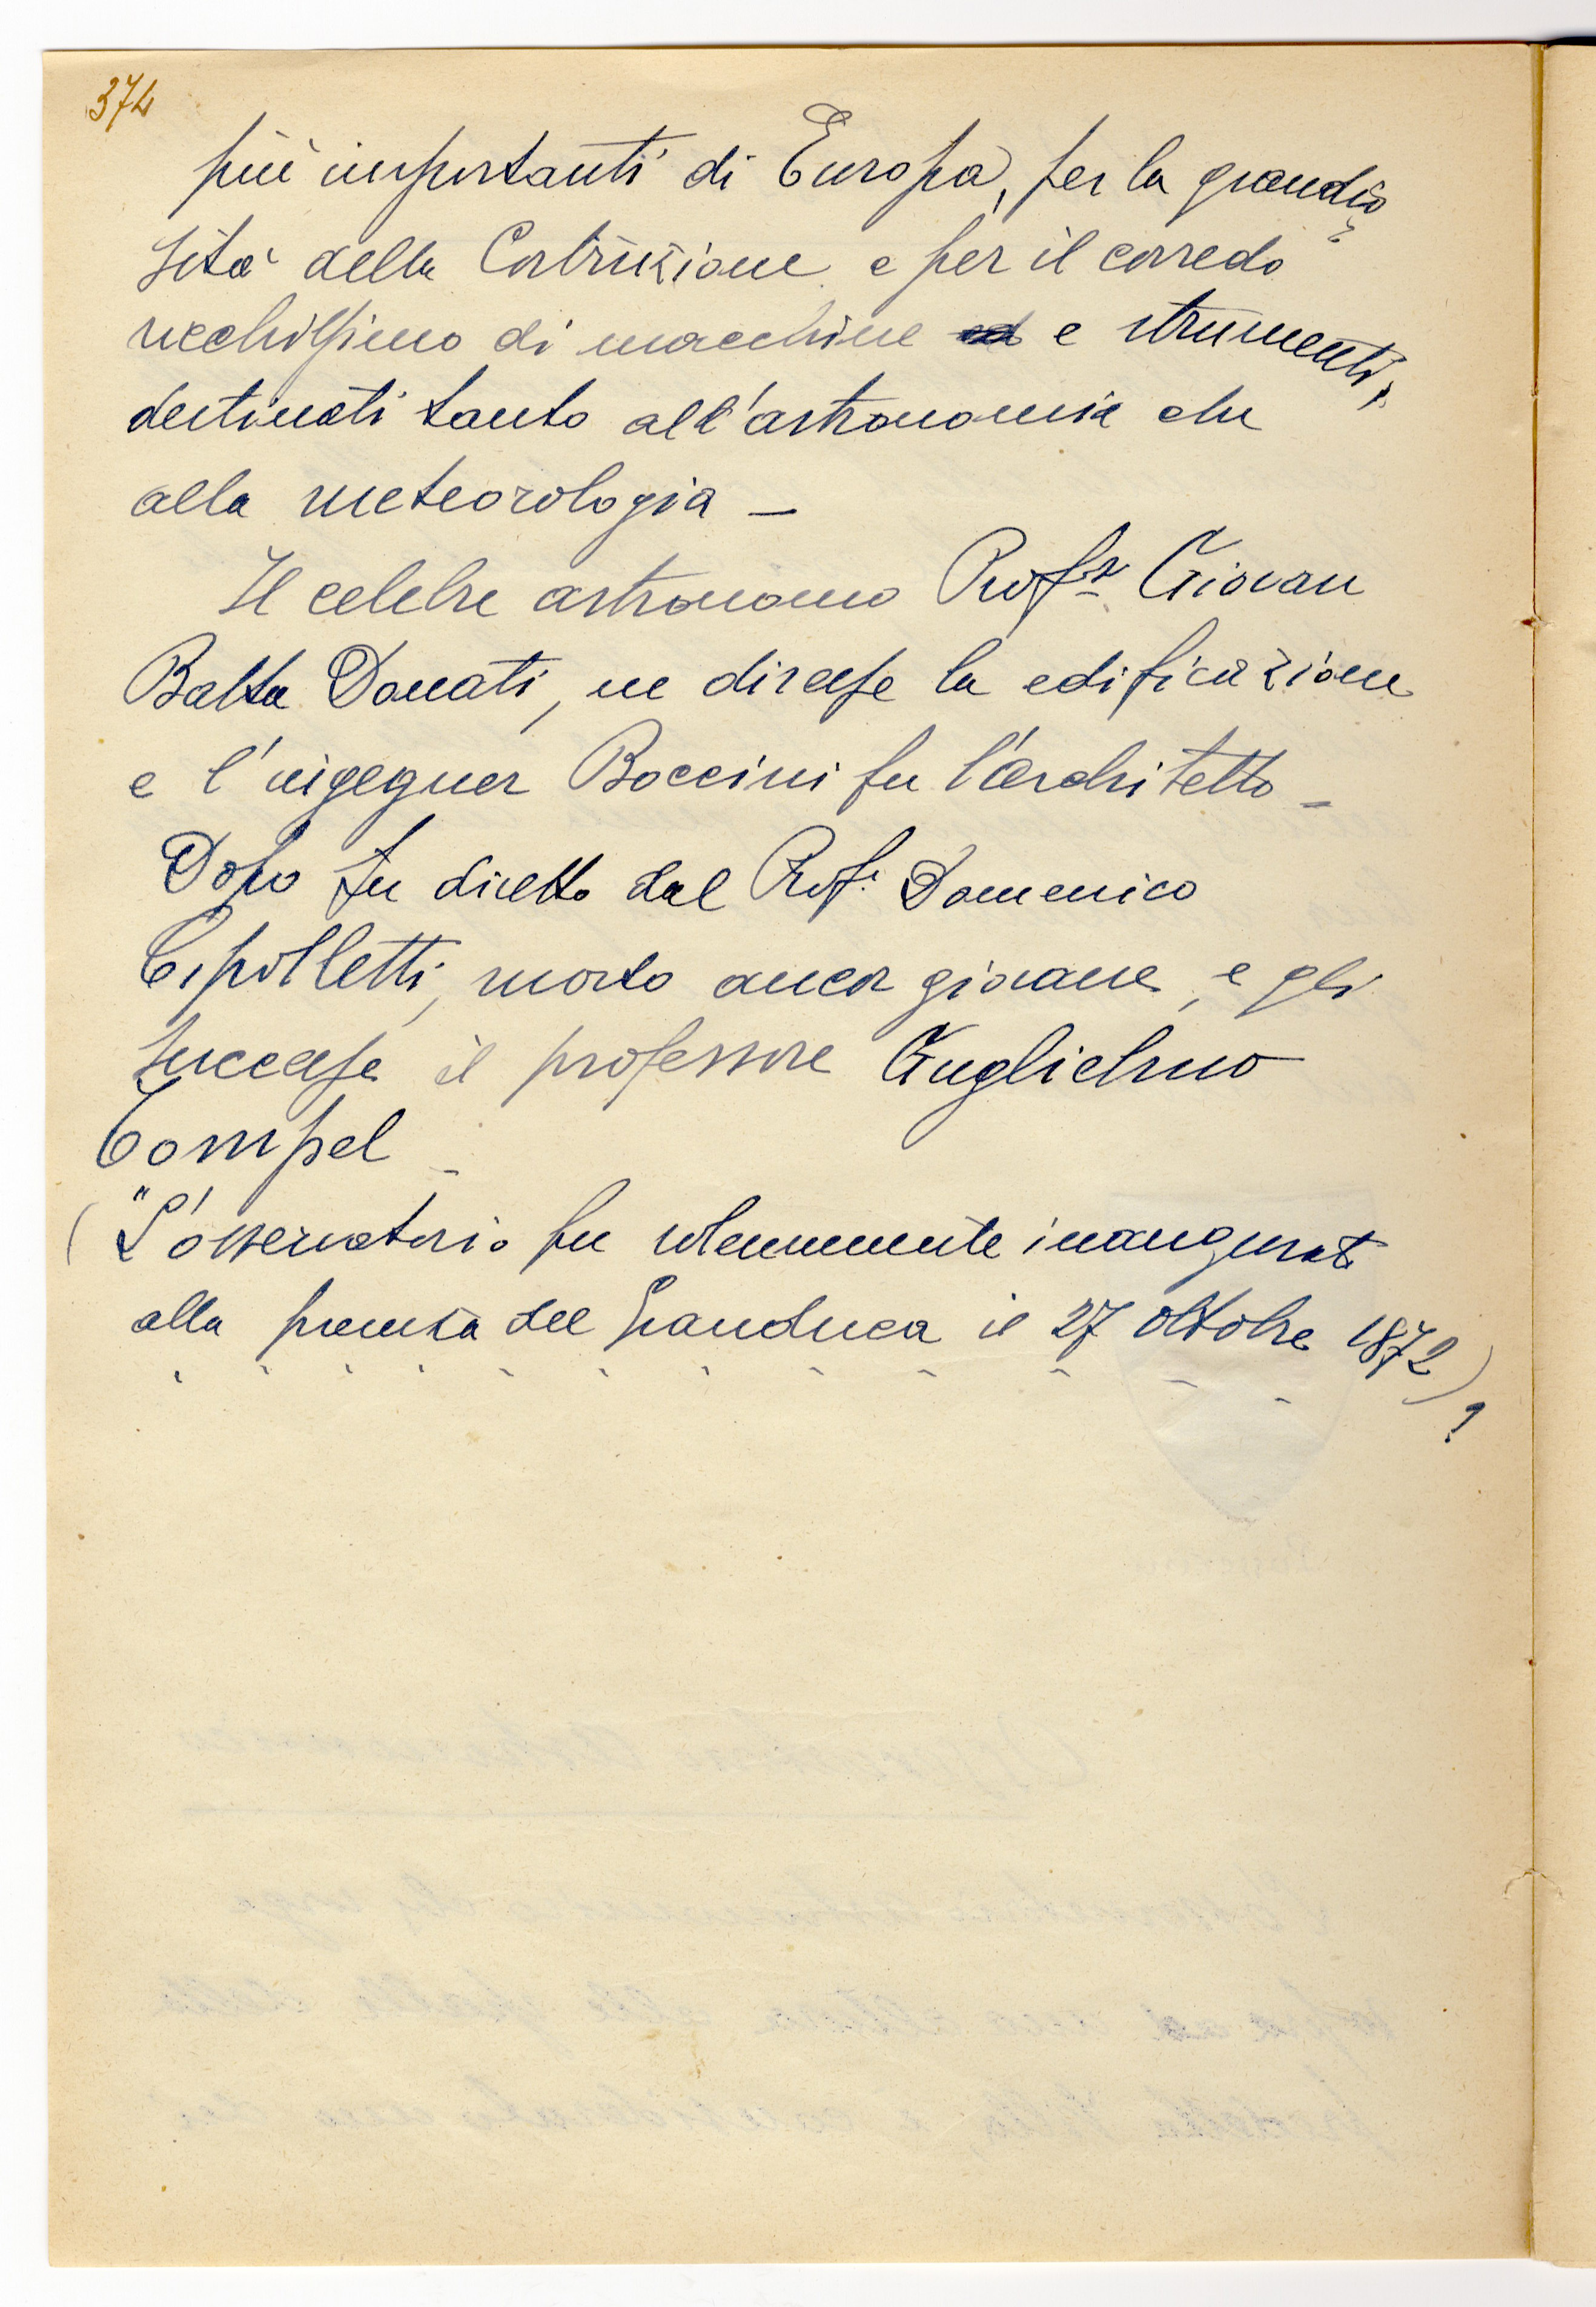 374
più importanti di Europa, per la grandio
sità della Costruzione e per il corredo
ricchissimo di macchine ed e strumenti,
destinati tanto all'astronomia che
alla meteorologia –
Il celebre astronomo Profr Giovan
Batta Donati, ne diresse la edificazione
e l'ingegner Boccini fu l'architetto –
Dopo fu diretto dal Prof. Domenico
Cipolletti, morto ancor giovane, e gli
successe il professore Guglielmo
Tompel –
("L'osservatorio fu solennemente inaugurato
alla presenza del Granduca il 27 ottobre 1872)
?